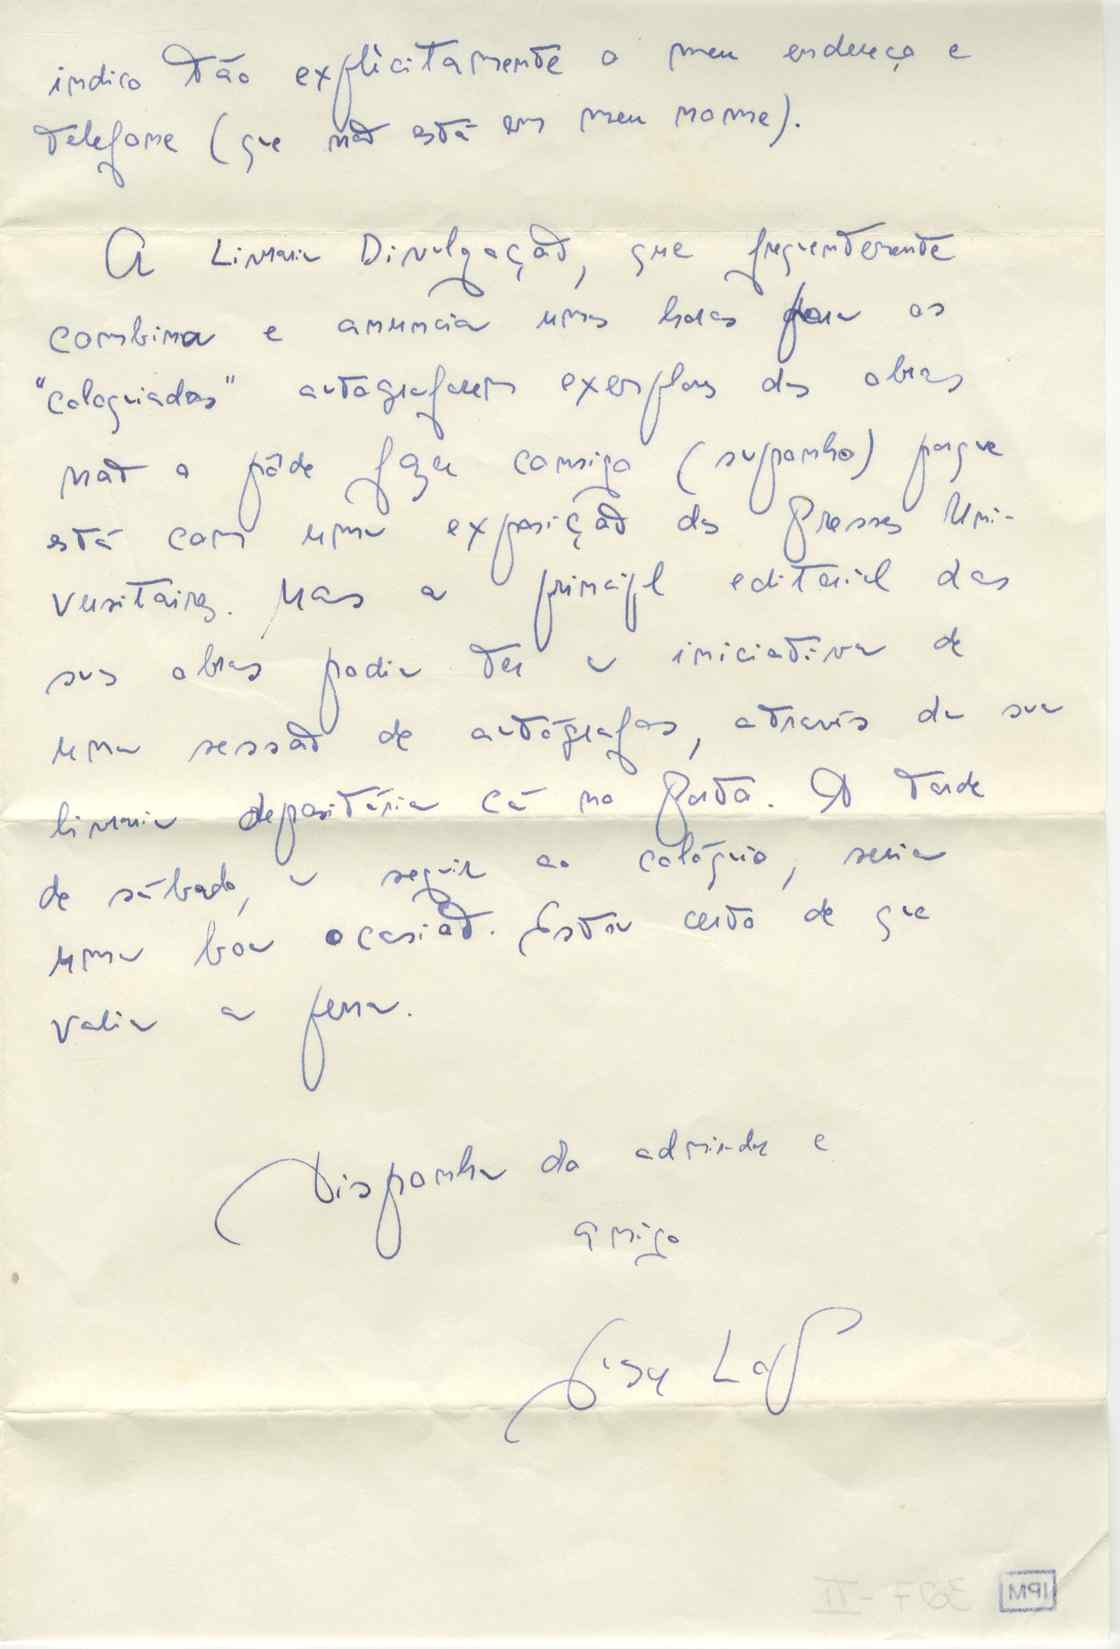 indico tão explìcitamente o meu endereço e
telefone (que não está em meu nome).
A Livraria Divulgação, que frequentemente
combina e anuncia umas horas para os
"coloquiados" autografarem exemplares das obras
não o pôde fazer consigo (suponho) porque
está com uma exposição das Presses Uni-
versitaires. Mas a principal editorial das
suas obras podia ter a iniciativa de
uma sessão de autógrafos, através da sua
livraria depositária cá no Porto. A tarde
de sábado, a seguir ao colóquio, seria
uma boa ocasião. Estou certo de que
valia a pena.
Disponha do admirador e
amigo
307-II IPM